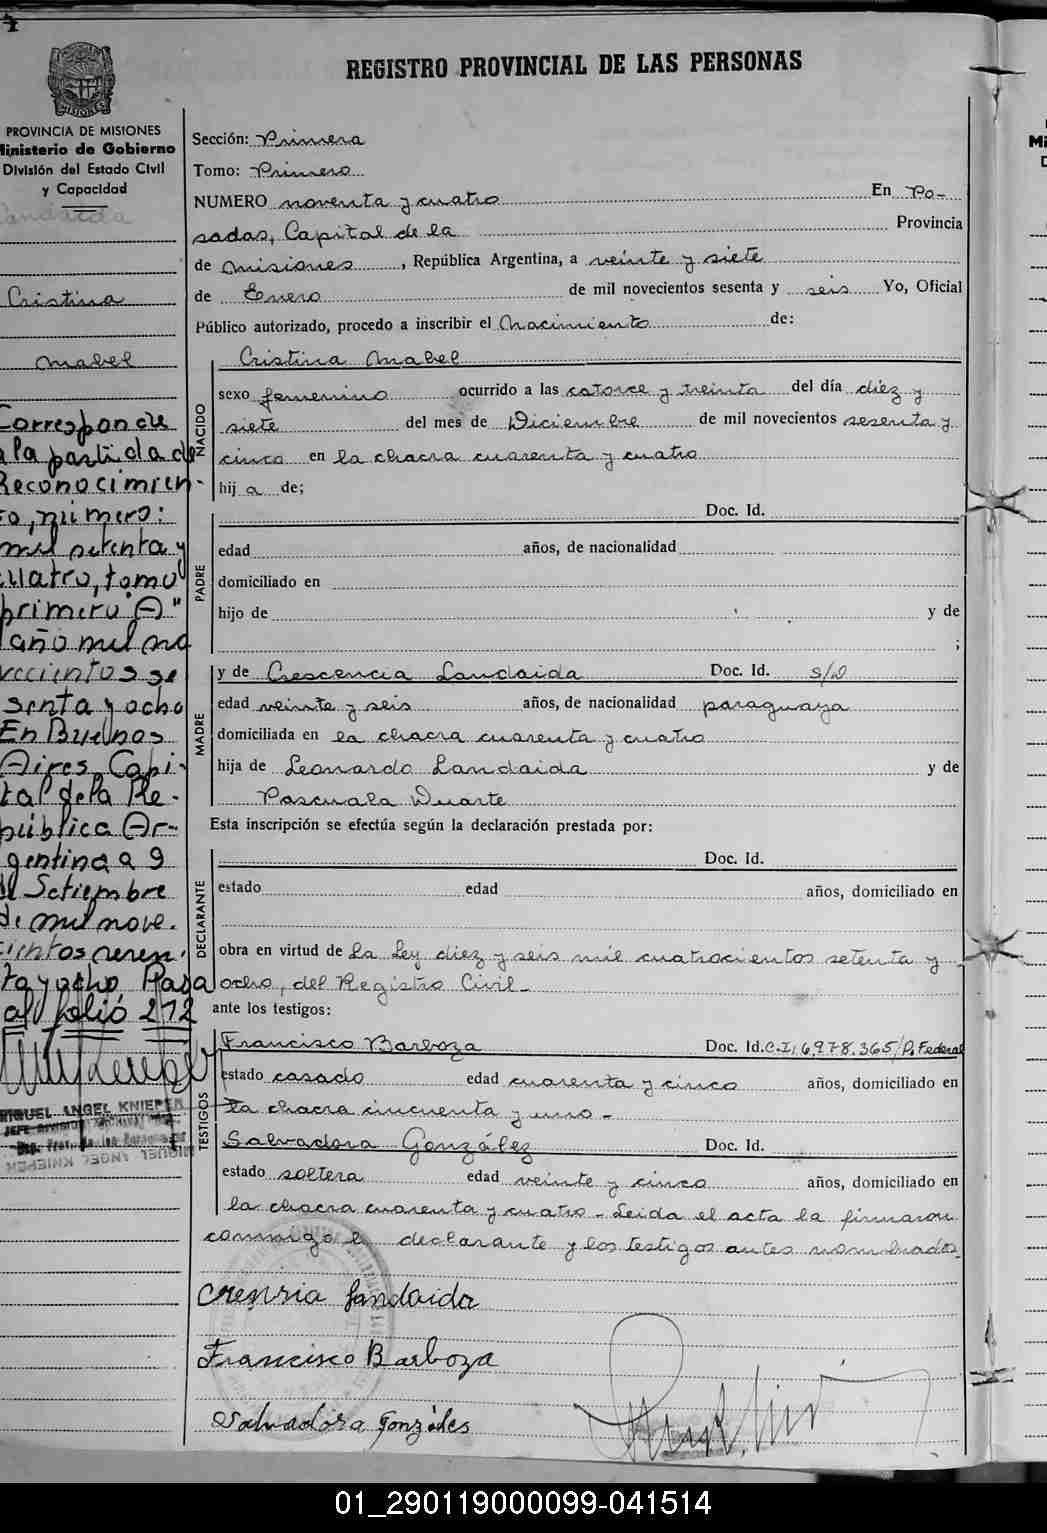 REGISTRO PROVINCIAL DE LAS PERSONAS
MISIONES
PROVINCIA DE MISIONES
Ministerio de Gobierno
División del Estado Civil
y Capacidad
Landaida
Cristina
Mabel
Corresponde
a la partida de
Reconocimien-
to, número:
mil setenta y
cuatro, tomo
primero "A"
año mil no
vecientos se
senta y ocho
En Buenos
Aires, Capi-
tal de la Re-
pública Ar-
gentina a 9
de Setiembre
de mil nove-
cientos seten-
ta y ocho Pasa
al folió 272
MIGUEL ANGEL KNIEPER
Sección: Primera
Tomo: Primero
NUMERO noventa y cuatro En Po-
sadas, Capital de la Provincia
de Misiones, República Argentina, a veinte y siete
de Enero de mil novecientos sesenta y seis Yo, Oficial
Público autorizado, procedo a inscribir el Nacimiento de:
NACIDO
Cristina Mabel
sexo femenino ocurrido a las catorce y treinta del día diéz y
siete del mes de Diciembre de mil novecientos sesenta y
cinco en la chacra cuarenta y cuatro
hij a de;
PADRE
Doc. Id.
edad años, de nacionalidad
domiciliado en
hijo de y de
;
MADRE
y de Crescencia Landaida Doc. Id. s/d
edad veinte y seis años, de nacionalidad paraguaya
domiciliada en la chacra cuarenta y cuatro
hija de Leonardo Landaida y de
Pascuala Duarte
Esta inscripción se efectúa según la declaración prestada por:
DECLARANTE
Doc. Id.
estado edad años, domiciliado en
obra en virtud de la Ley diez y seis mil cuatrocientos setenta y
ocho, del Registro Civil-
ante los testigos:
TESTIGOS
Francisco Barboza Doc. Id. C.I, 6.978.365/P. Federal
estado casado edad cuarenta y cinco años, domiciliado en
la chacra cincuenta y uno-
Salvadora González Doc. Id.
estado soltera edad veinte y cinco años, domiciliado en
la chacra cuarenta y cuatro- Leida el acta la firmaron
conmigo el declarante y los testigos antes nombrados.
Francisco Barboza
Salvadora Gonzáles
01_290119000099-041514